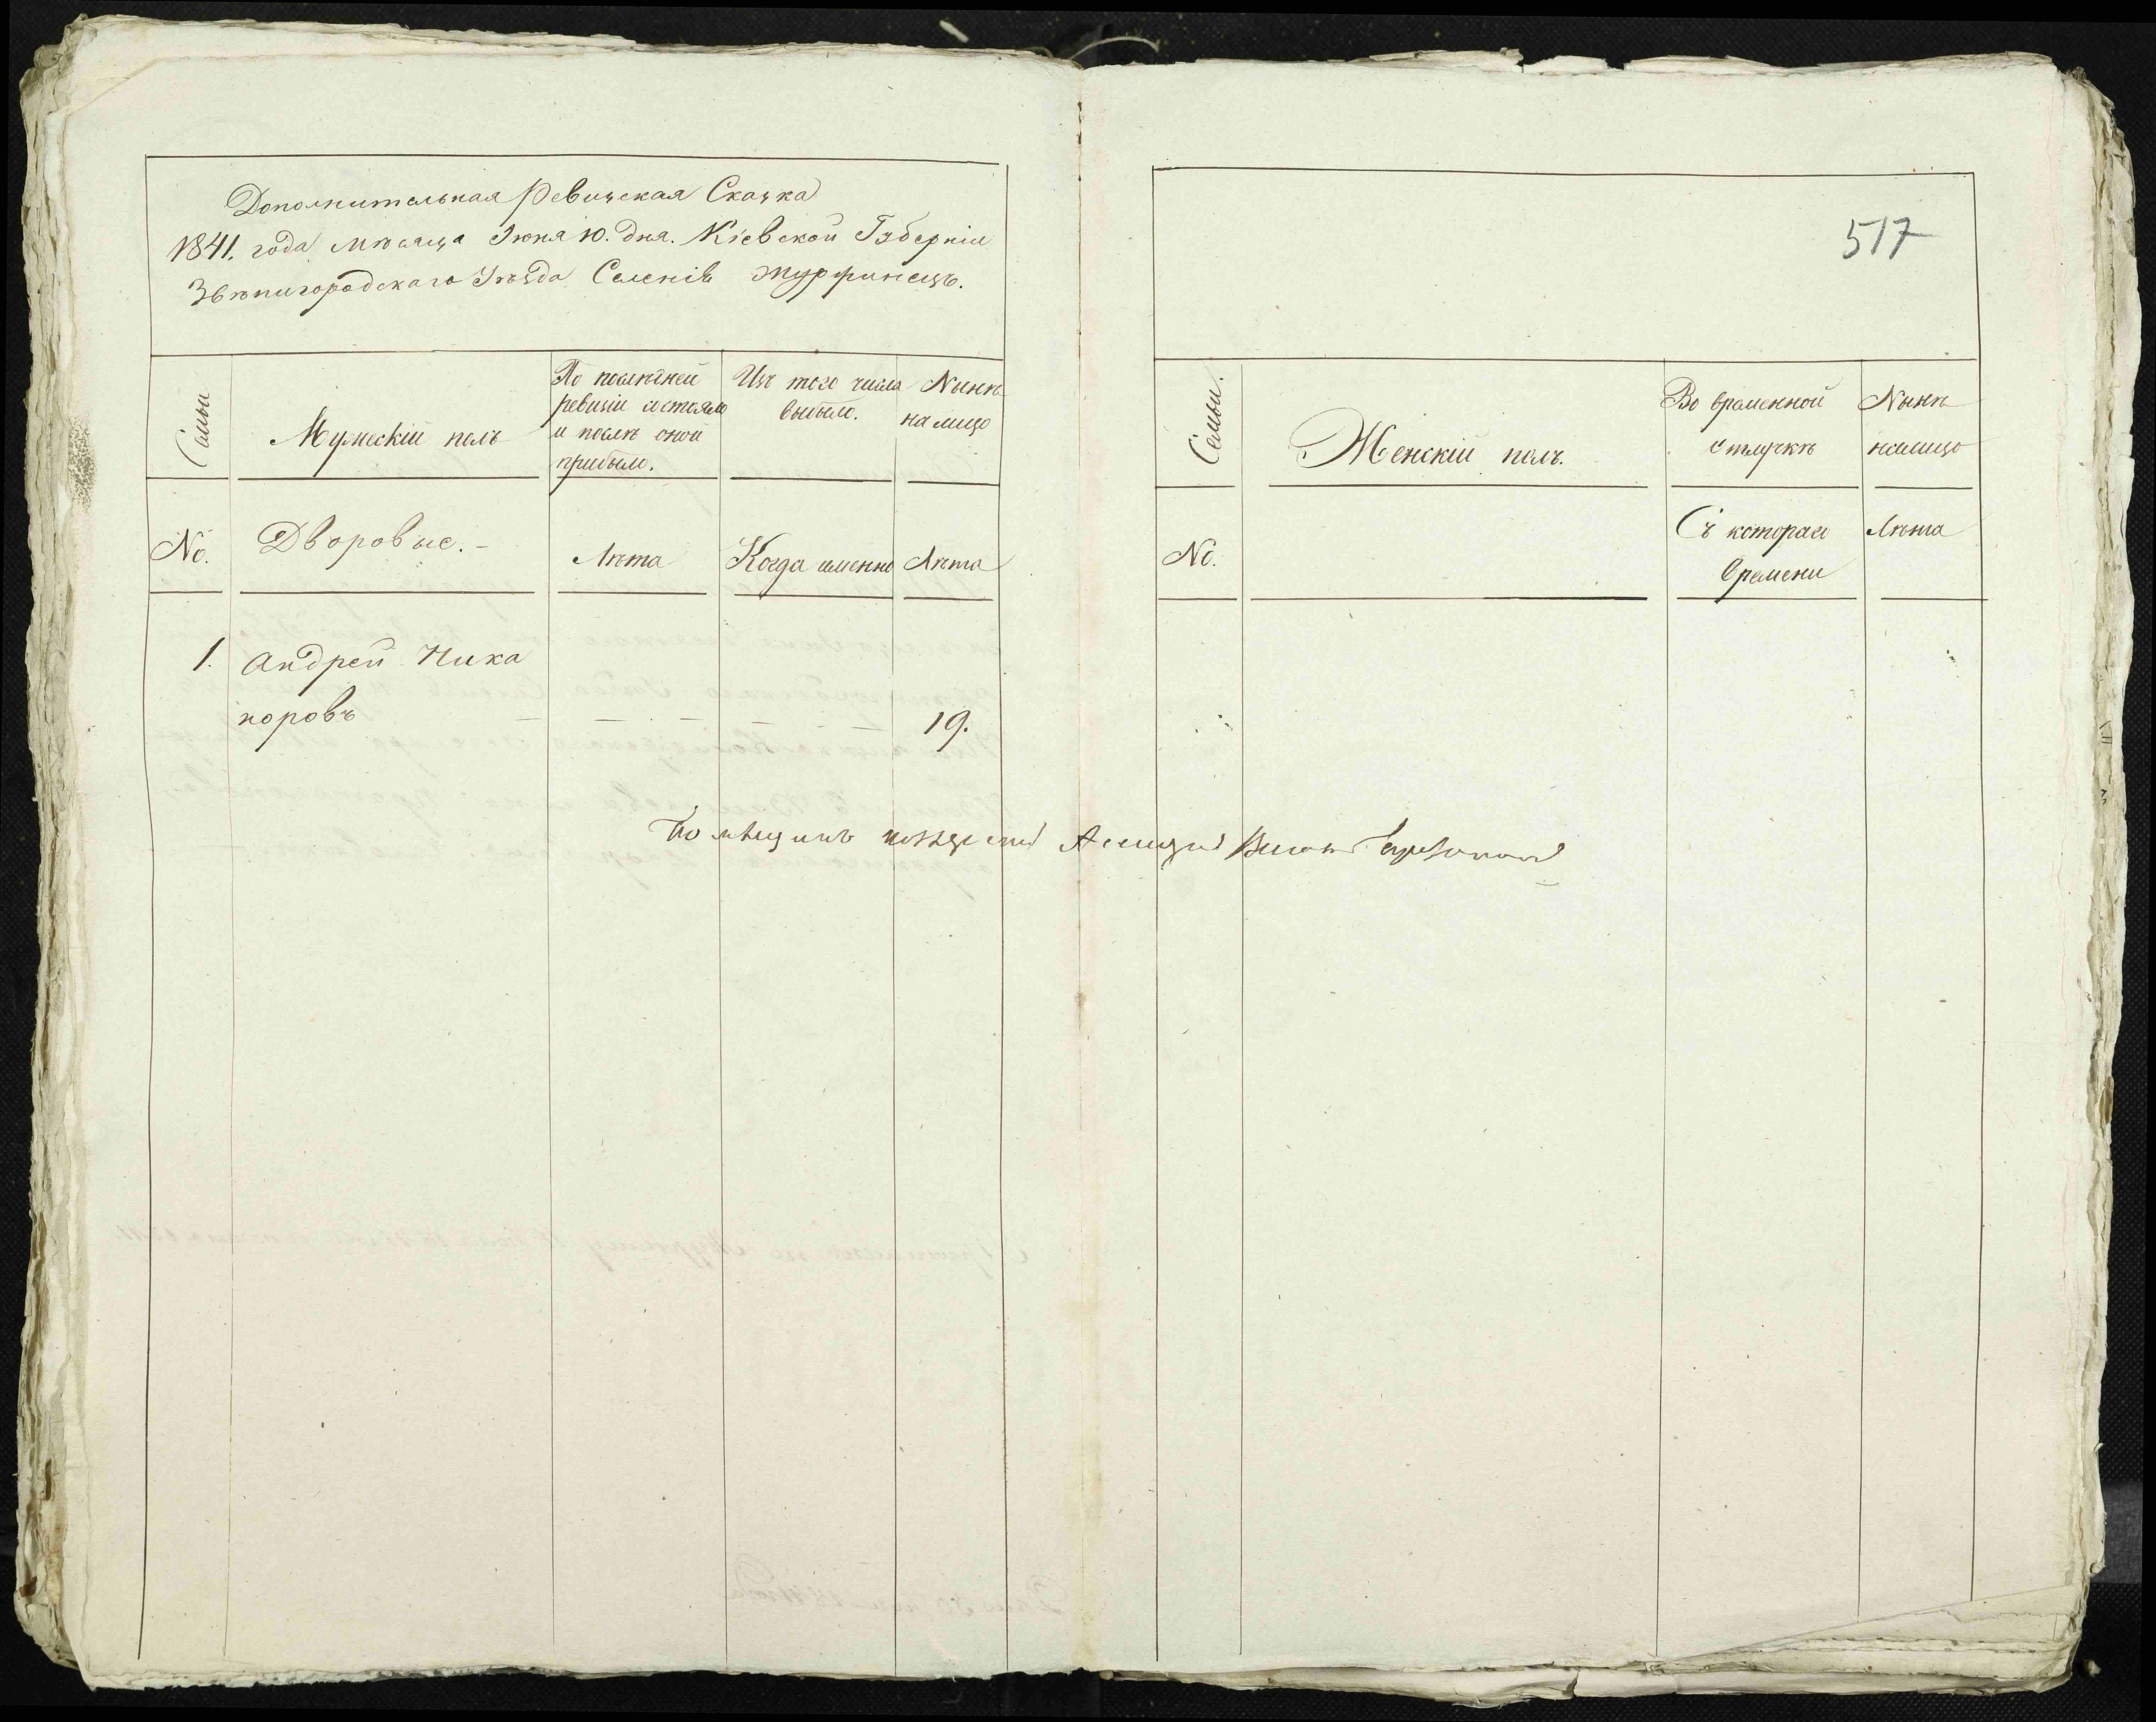 Дополнительная Ревизская Сказка
1841. года мѣсяца Июня 10. дня. Кіевской Губерніи
Звѣнигородскаго Уѣзда Селенія
Семьи
Мужескій полъ
По послѣдней
ревизіи состояло
и послѣ оной
прибыло.
Изъ того числа
выбыло.
Нынѣ
на лицо
No.
Дворовые. -
Лѣта
Когда именно
Лѣта
1. Андрей Ника
норовъ — — — — — — 19.
Помѣщикъ
517
Семьи.
Женскій полъ.
Во временной
отлучкѣ
Нынѣ
налицо
No.
Съ котораго
времени
Лѣта